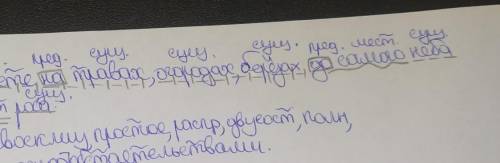 . пред. сущ. сущ. сущ. пред. мест. сущ.
на травах, огородах, берёзах, до самого неба
сущ.
роса.
восклиц, простое, распр, двусост, полн,
обстоятельствами.